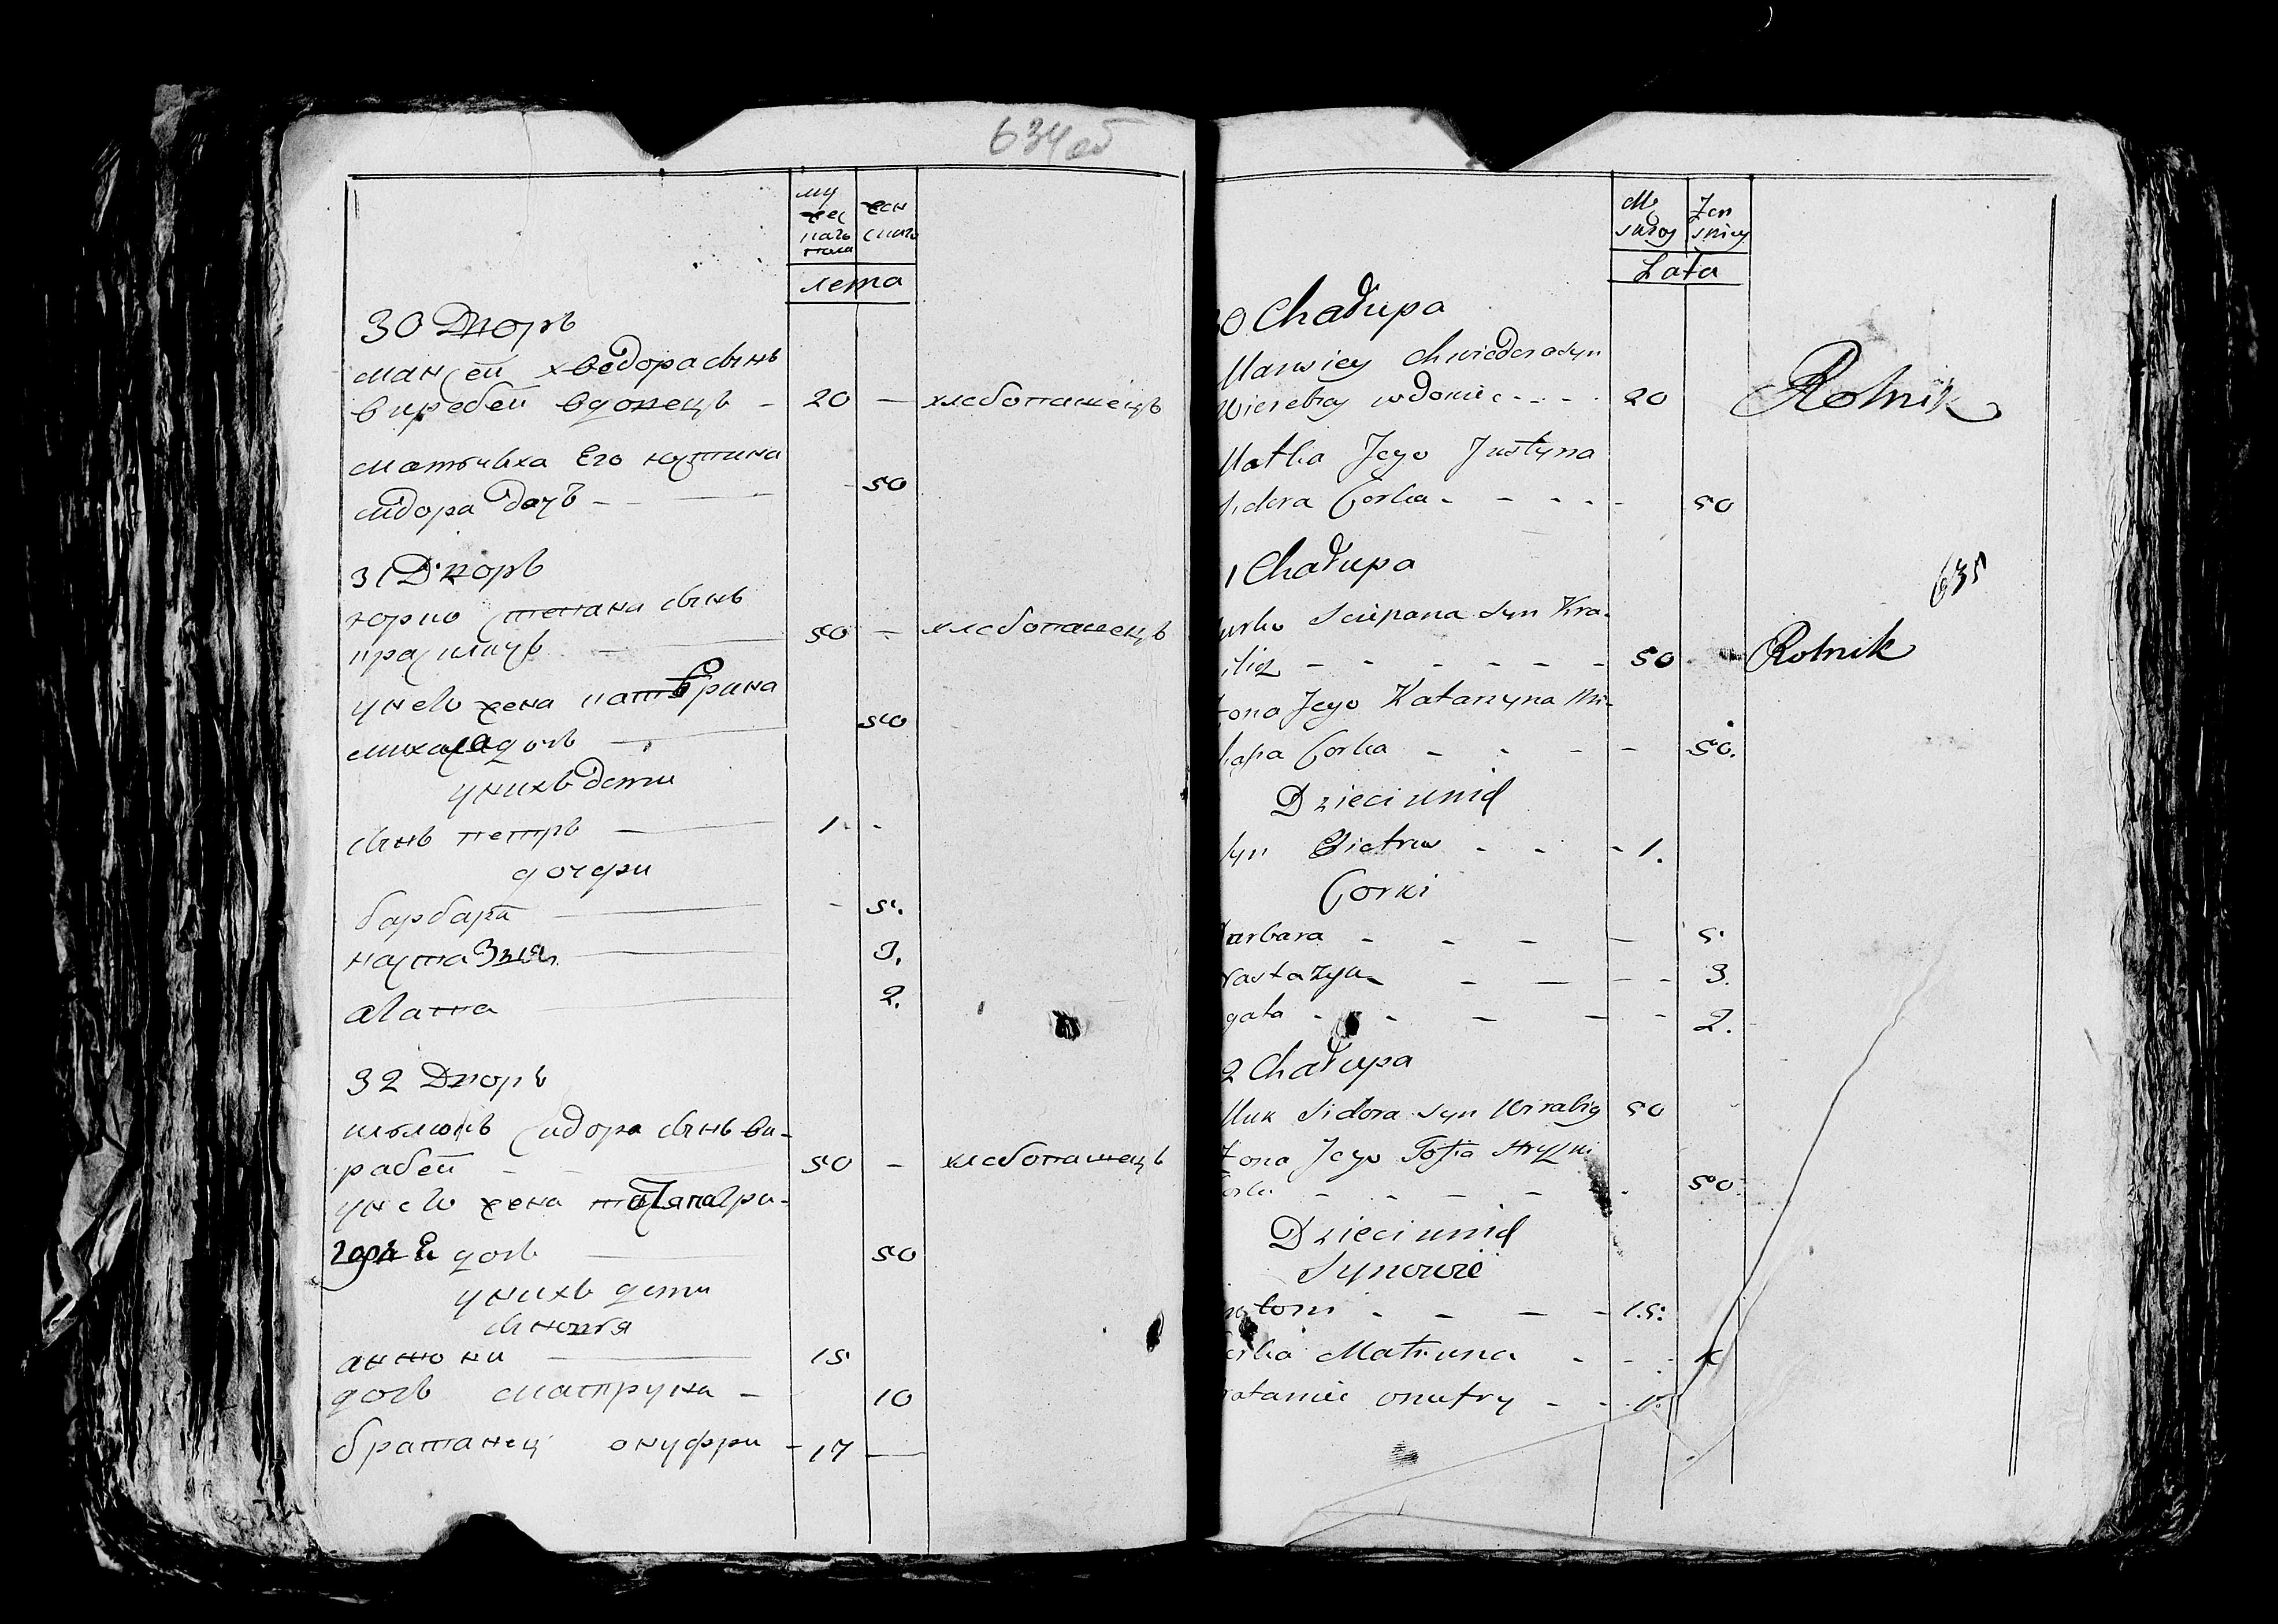 634 об
му
жес
каго
пола
жен
скаго
лета
30 Дворъ
мансей хведора сынъ
виребей вдовецъ - 20 — хлебопашецъ
матчиха Его юстина
сидора дочъ - 50
31 Дворъ
юрко степана сынъ
50 — хлебопашецъ
у него жена катерина
михала дочъ — 50
у нихъ дети
сынъ петръ — 1. -
дочери
барбара — - 5.
настазия — 3.
агата — 2.
32 Дворъ
сидора сынъ ви-
рабей - 50 — хлебопашецъ
у него жена гри-
дочъ — 50
у нихъ дети
сыновья
антони — 15
дочъ матруна - 10
братанец онуфри - 17 —
Mę
skiey
Żen
skiey
Lata
0 Chałupa
Chwiedora syn
Wierebey wdowiec - - - - 20 Rolnik
Matka Jego Justyna
Sidora Corka - - - - - 50
635
1 Chałupa
urko Sciepana syn Kra-
- - - - - - 50 Rolnik
Żona Jego Katarzyna Mi-
Corka - - - - 50.
Dzieci unich
Syn Piotrw - - - 1.
Corki
arbara - - - - 5.
Nastazya - - - - 3.
gata - - - - - 2.
2 Chałupa
Sidora syn Wirabiey 50
Żona Jego Zofia
- - - - - 50.
Dzieci unich
Synowie
ntoni - - - - 15.
orka Matruna - - -
rataniec onufry - -